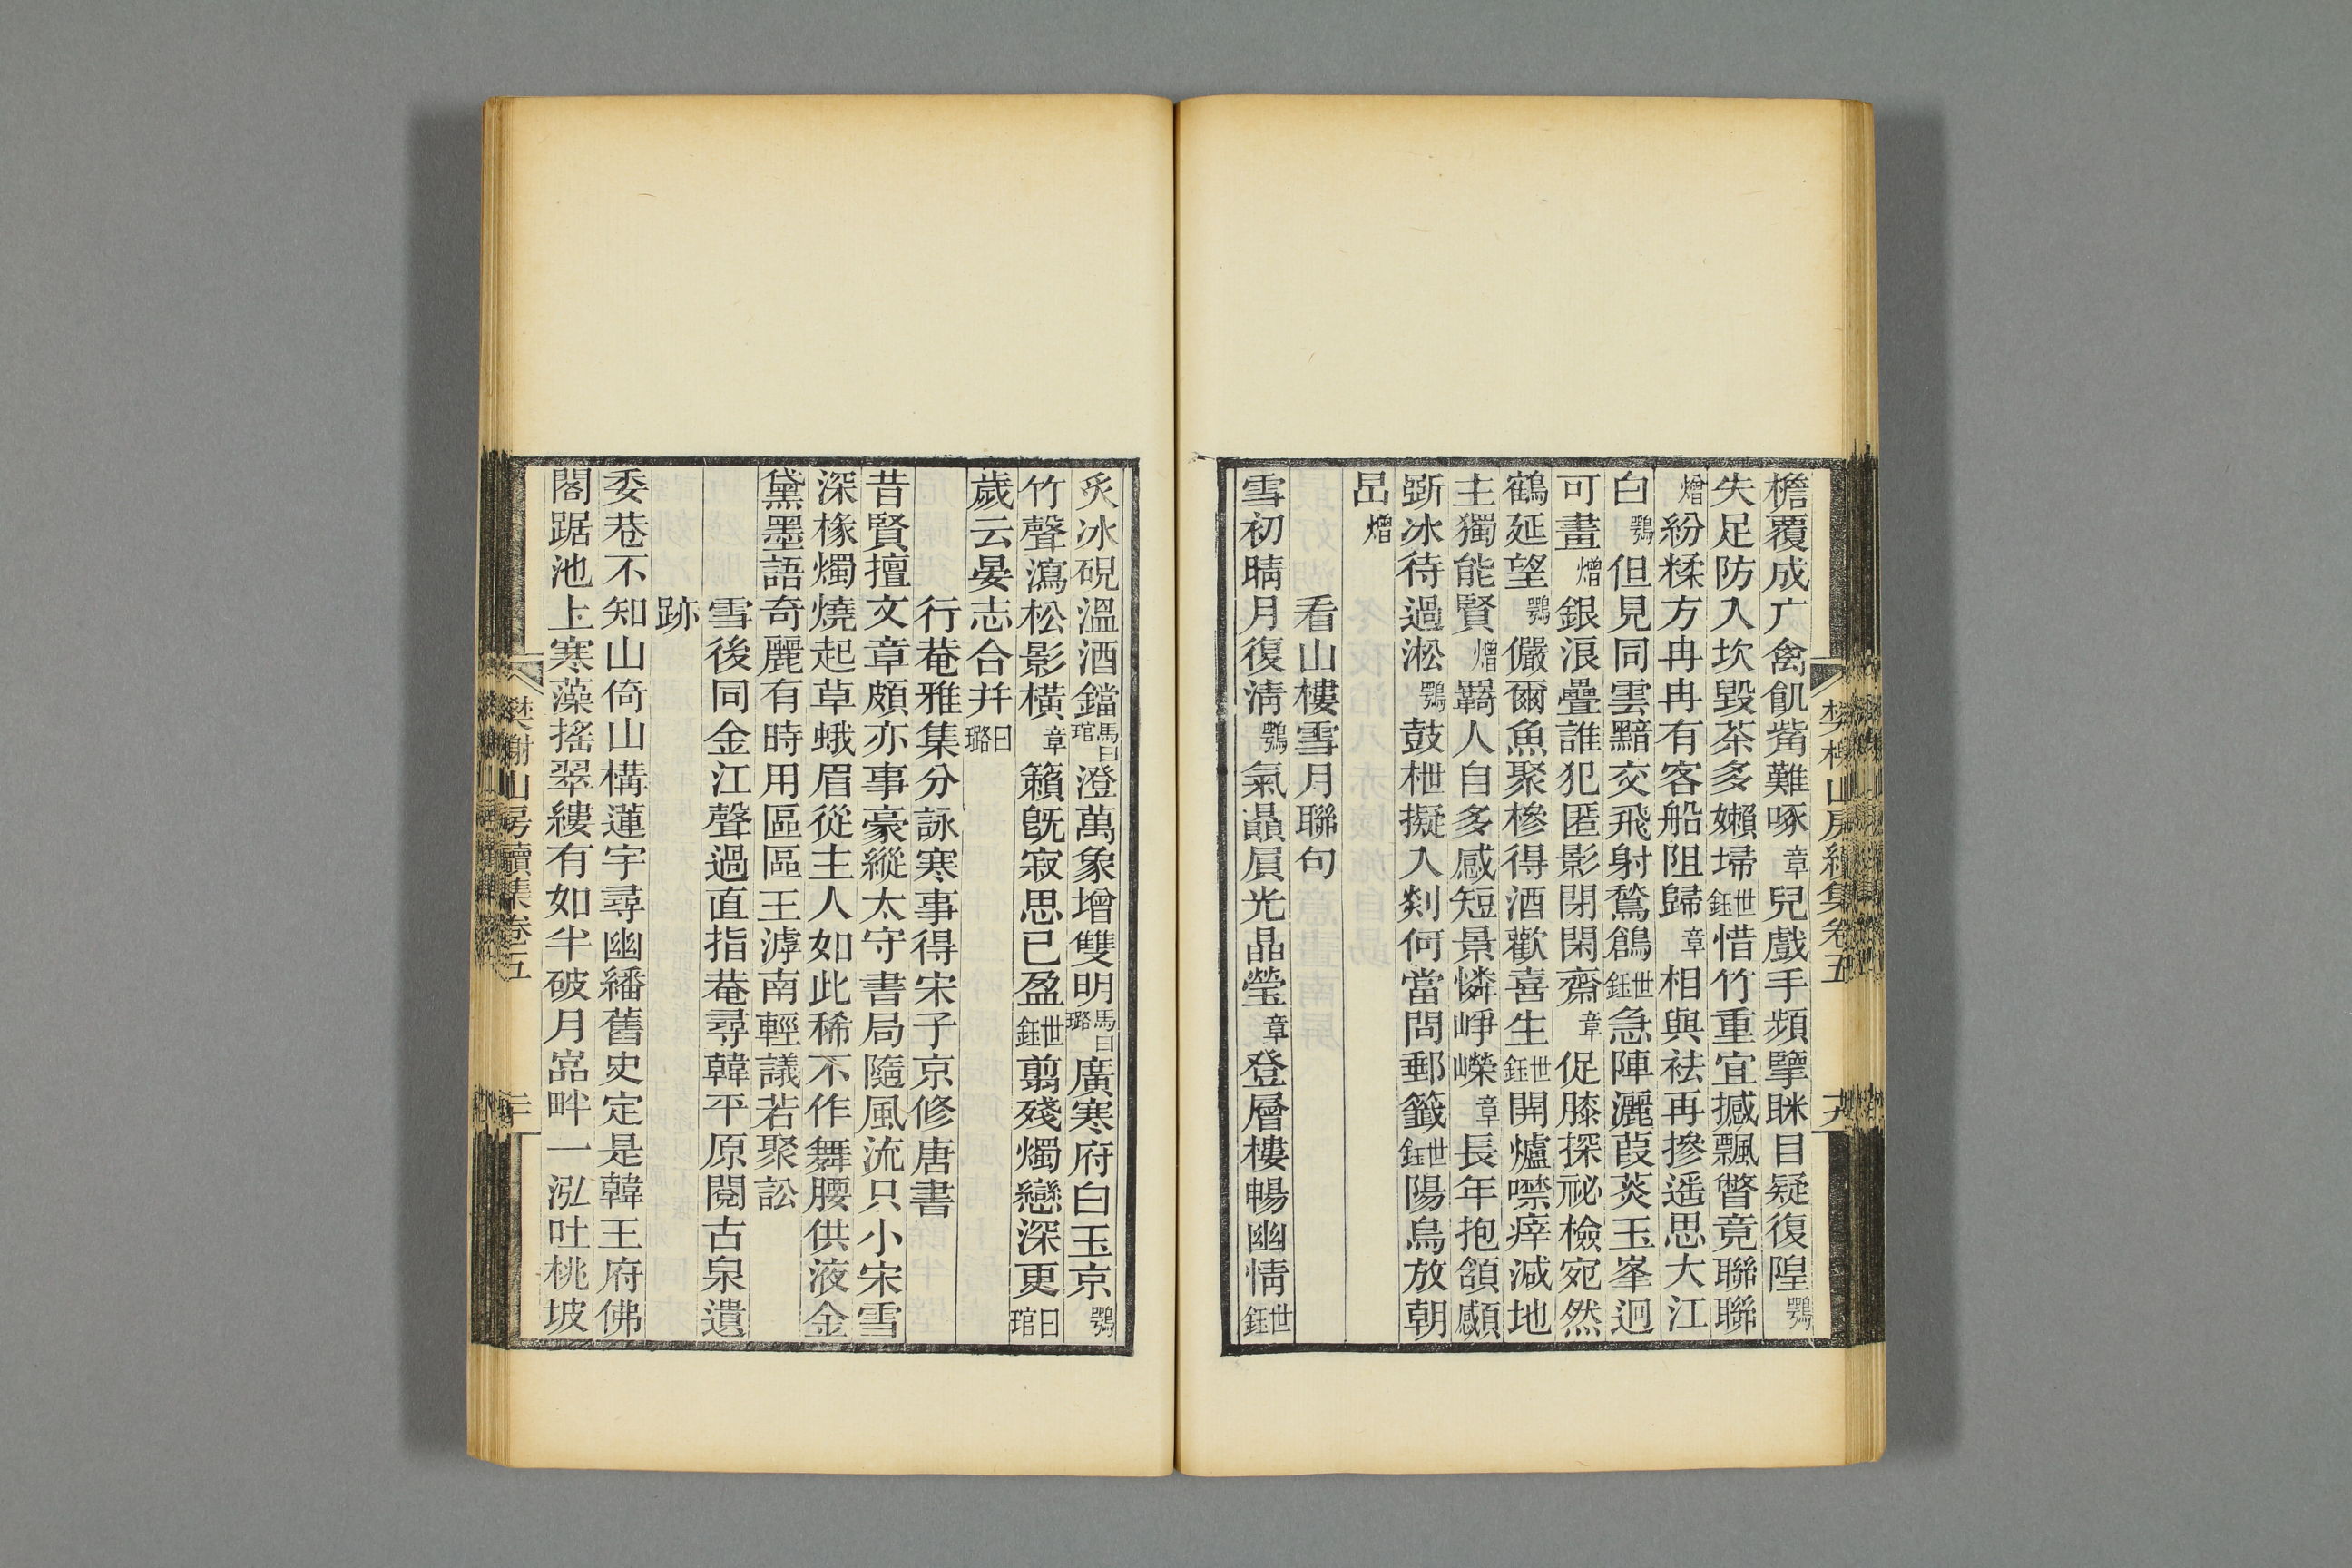 檐覆成广禽飢觜難啄章兒戲手頻擘眯目疑復隍鶚
失足防入坎毀茶多嬾埽世鈺惜竹重宜撼飄瞥竟聯聯
熷紛糅方冉冉有客船阻歸章相與祛再摻遥思大江
白鶚但見同雲黯交飛射鶖鶬世鈺急陣灑葭菼玉峯迥
可畫熷銀浪疊誰犯匿影閉閑齋章促膝探祕檢宛然
鶴延望鶚儼爾魚聚槮得酒歡喜生世鈺開爐噤瘁減地
主獨能賢熷羇人自多感短景憐崢嶸章長年抱頷顑
斲冰待過淞鶚鼓枻擬入剡何當問郵籤世鈺陽烏放朝
昍熷
看山樓雪月聯句
雪初晴月復淸鶚氣贔屓光晶瑩章登層樓暢幽情世鈺
樊榭山房續集卷五
十九
炙冰硯溫酒鐺馬曰琯澄萬象增雙明馬曰璐廣寒府白玉京鶚
竹聲瀉松影橫章籟旣寂思已盈世鈺翦殘燭戀深更曰琯
歲云晏志合幷曰璐
行菴雅集分詠寒事得宋子京修唐書
昔賢擅文章頗亦事豪縱太守書局隨風流只小宋雪
深椽燭燒起草蛾眉從主人如此稀不作舞腰供液金
黛墨語奇麗有時用區區王滹南輕議若聚訟
雪後同金江聲過直指菴尋韓平原閱古泉遺
跡
委巷不知山倚山構蓮宇尋幽繙舊史定是韓王府佛
閣踞池上寒藻搖翠縷有如半破月嵓畔一泓吐桃坡
樊榭山房續集卷五
二十